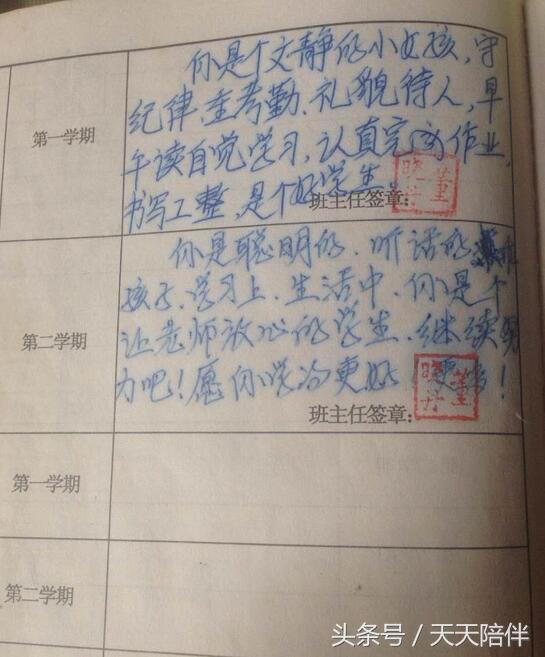 第一学期
你是个文静的小女孩,守
纪律,重考勤、礼貌待人,早
午读自觉学习,认真完成作业,
书写工整,是个好学生。
班主任签章:
董晓丹
第二学期
你是聪明的、听话的
孩子,学习上、生活中、你是个
让老师放心的学生,继续努
力吧!愿你学得更好、更多!
班主任签章:
董晓丹
第一学期
第二学期
头条号/天天陪伴